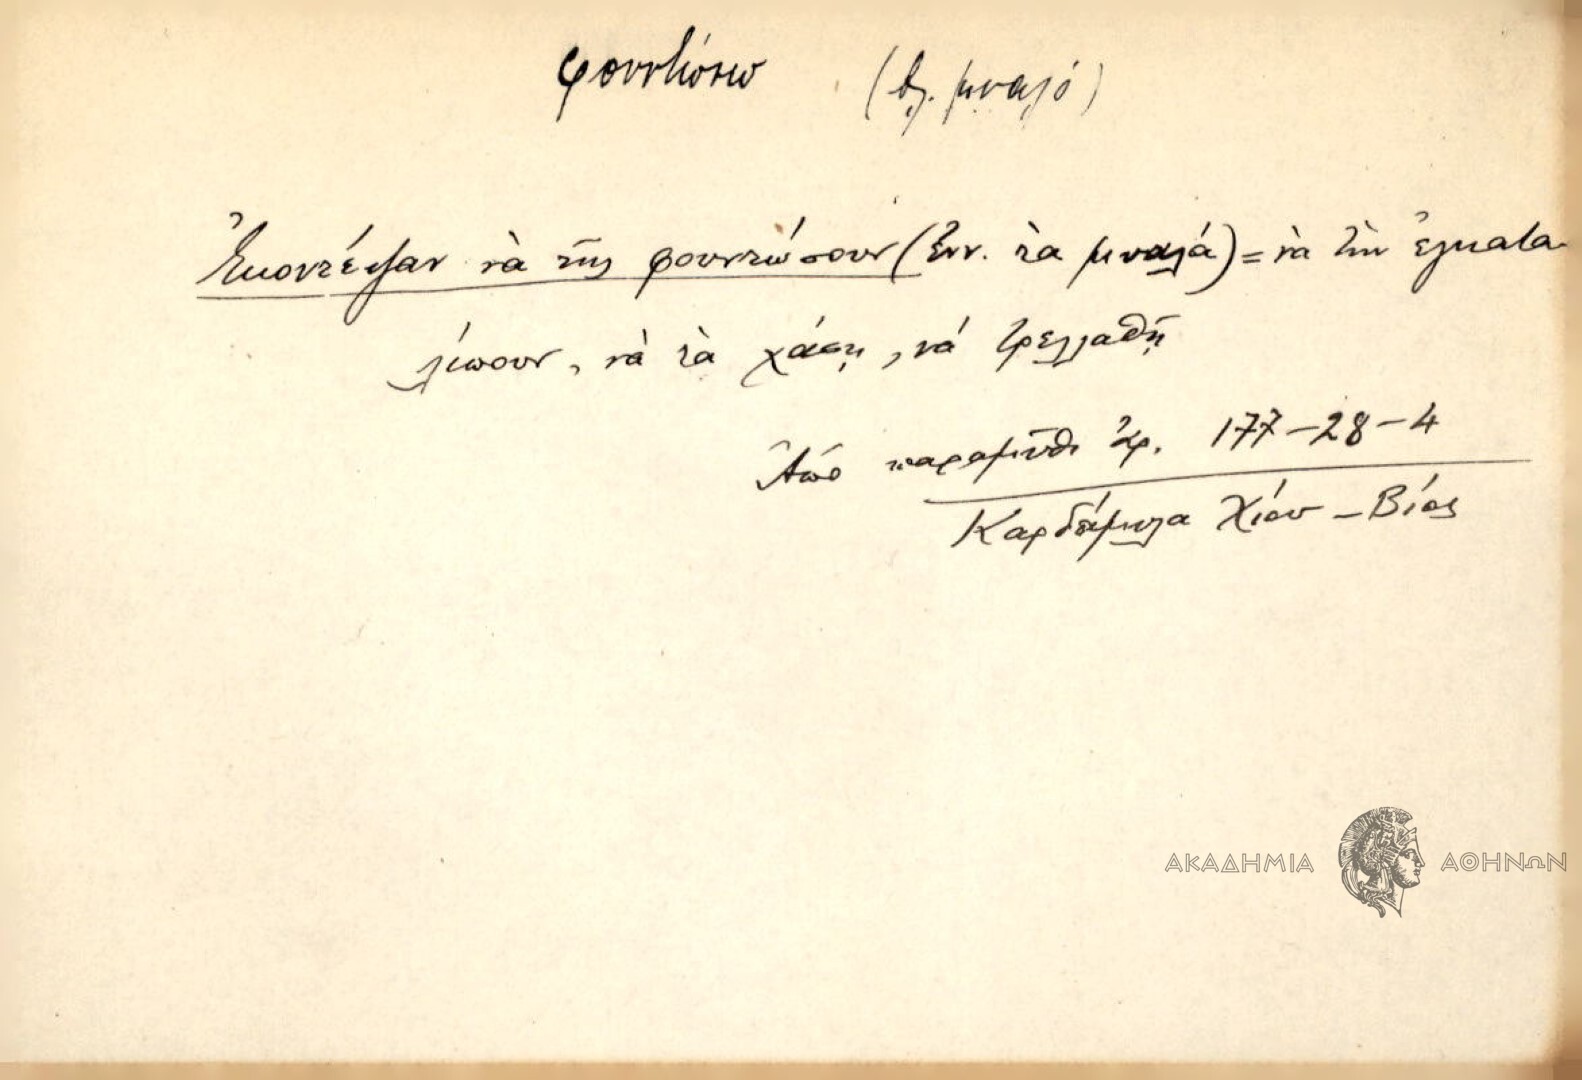 φουντώνω (βλ. μυαλό)
Ἐκοντέψαν νὰ τῆς φουντώσουν (ἐνν. τὰ μυαλά) = νὰ τὴν ἐγκατα-
λείπουν, νὰ τὰ χάσῃ, νά τρελλαθῇ
Ἀπό παραμύθι ἀρ. 177-28-4
Καρδάμυλα Χίου - Βίος
ΑΚΑΔΗΜΙΑ ΑΘΗΝΩΝ